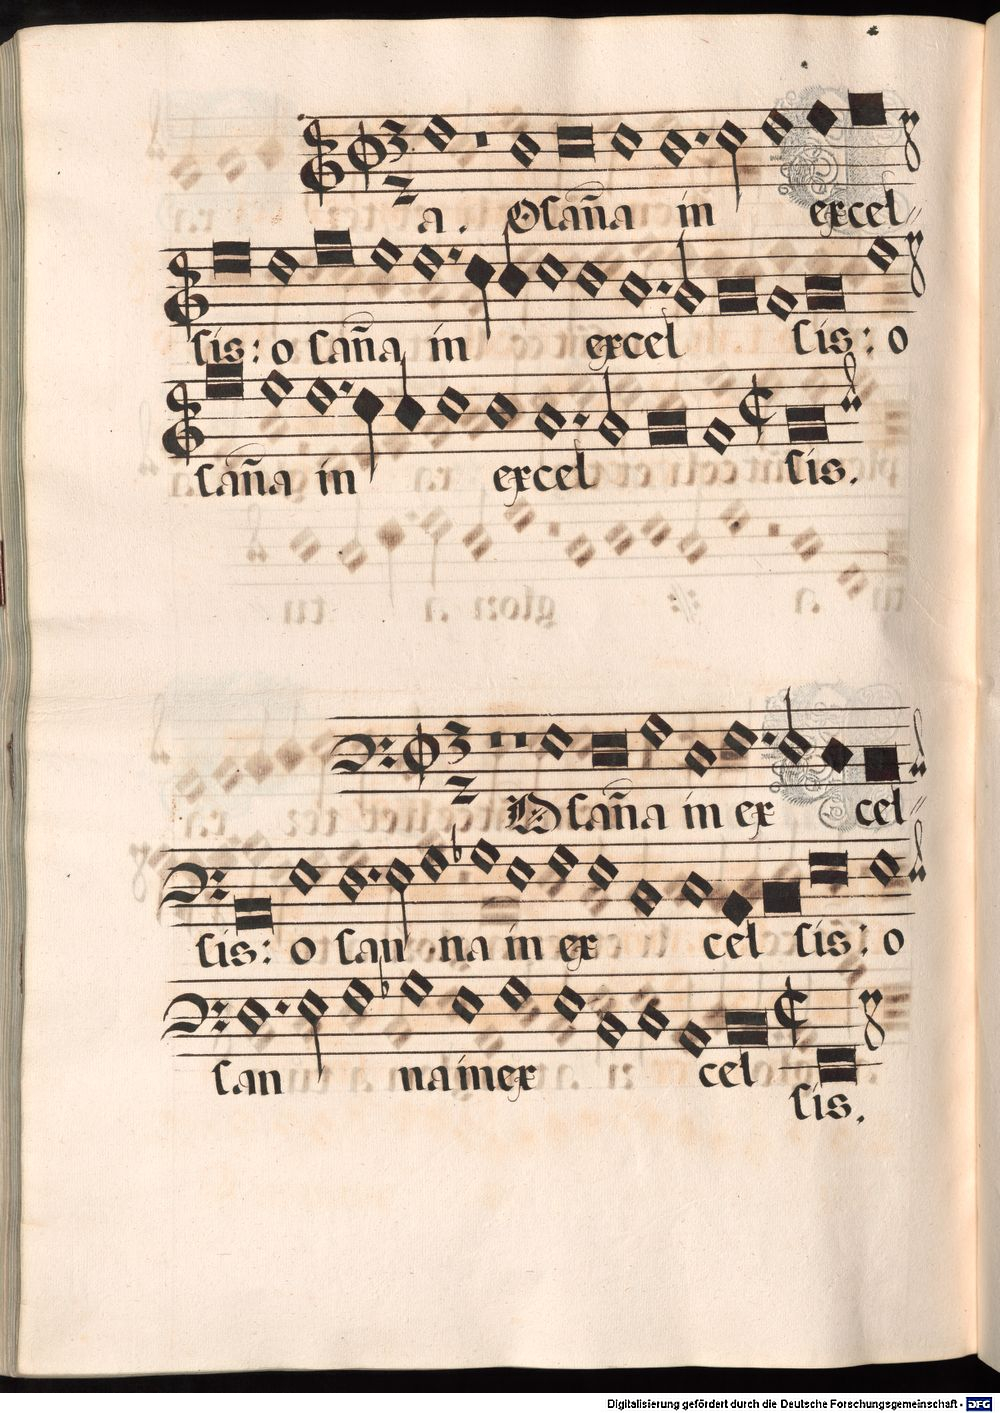 a. Osan̄a in excel
sis: o san̄a in excel sis: o
san̄a in excel sis.
Osan̄a in ex cel
sis: o san na in ex cel sis: o
san na in ex cel
sis.
Digitalisierung gefördert durch die Deutsche Forschungsgemeinschaft - DFG